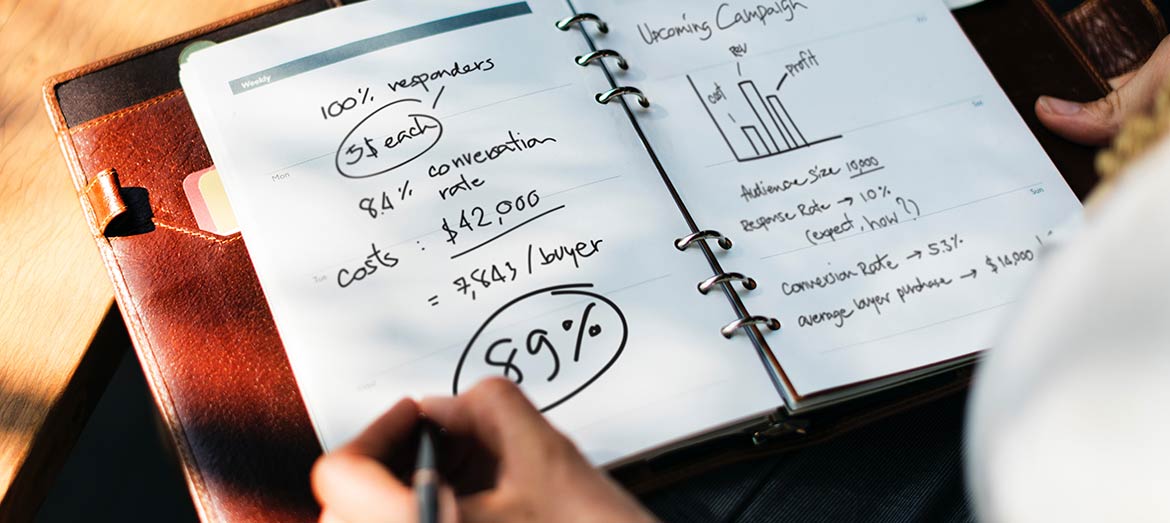 Weekly
100% responders
5$ each
8.4% conversation
rate
costs : $42,000
= 7,843 / buyer
89%
Mon
Tue
Upcoming Campaign
cost
Rev
profit
Audience Size 10,000
Response Rate → 10%
(expect, how?)
Conversion Rate → 5.3%
average buyer purchase → $14,000
Fri
Sat
Sun